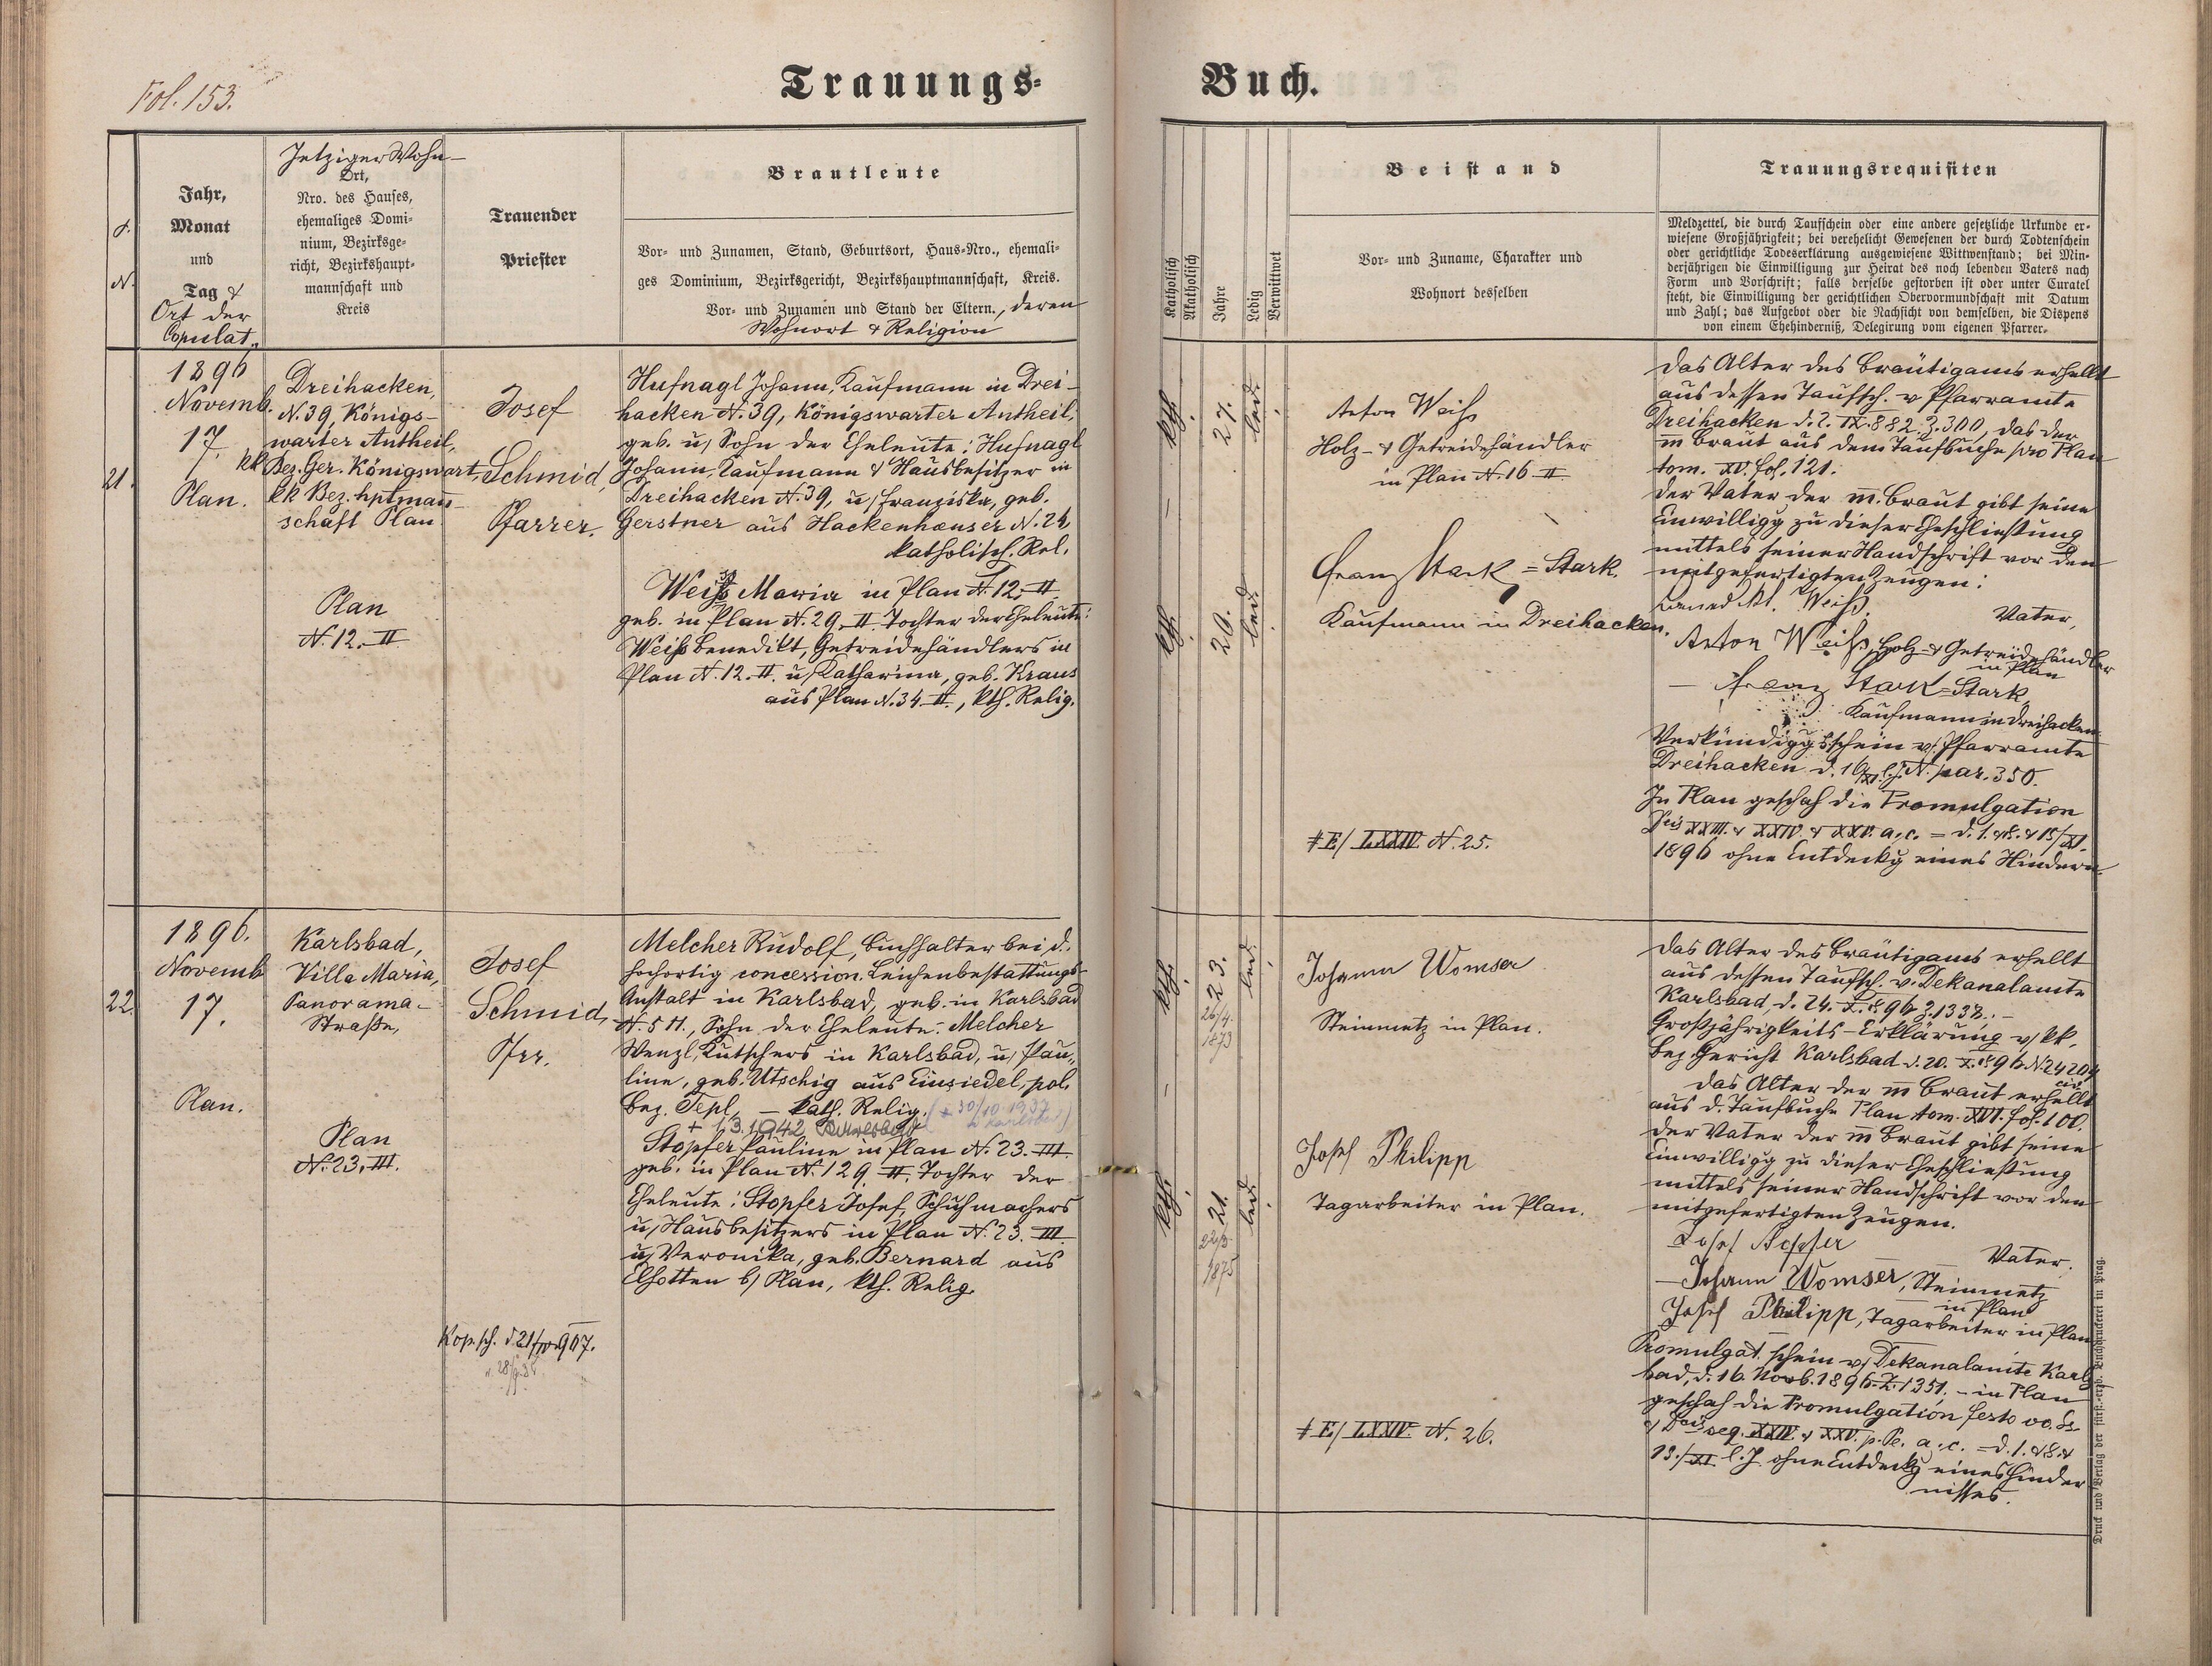 Fol. 153.
Trauungs-
Buch.
F.
N.
Jahr,
Monat
und
Tag &
Ort der
Copulat.
Jetziger Wohn-
Ort,
Nro. des Hauses,
ehemaliges Domi-
nium, Bezirksge-
richt, Bezirkshaupt-
mannschaft und
Kreis
Trauender
Priester
Brautleute
Vor- und Zunamen, Stand, Geburtsort, Haus-Nro., ehemali-
ges Dominium, Bezirksgericht, Bezirkshauptmannschaft, Kreis.
Vor- und Zunamen und Stand der Eltern., deren
Wohnort & Religion
Katholisch
Akatholisch
Jahre
Ledig
Verwittwet
Beistand
Vor- und Zuname, Charakter und
Wohnort desselben
Trauungsrequisiten
Meldzettel, die durch Taufschein oder eine andere gesetzliche Urkunde er-
wiesene Großjährigkeit; bei verehelicht Gewesenen der durch Todtenschein
oder gerichtliche Todeserklärung ausgewiesene Wittwenstand; bei Min-
derjährigen die Einwilligung zur Heirat des noch lebenden Vaters nach
Form und Vorschrift; falls derselbe gestorben ist oder unter Curatel
steht, die Einwilligung der gerichtlichen Obervormundschaft mit Datum
und Zahl; das Aufgebot oder die Nachsicht von demselben, die Dispens
von einem Ehehinderniß, Delegirung vom eigenen Pfarrer.
21.
1896
Novemb.
17.
Plan.
Dreihacken,
N. 39, Königs-
warter Antheil,
kk Bez. Ger. Königswart,
kk Bez. hptmann-
schaft Plan
Plan
N. 12. II
Josef
Schmid,
Pfarrer.
Hufnagl Johann, Kaufmann in Drei-
hacken N. 39, Königswarter Antheil,
geb. u/ Sohn der Eheleute: Hufnagl
Johann, Kaufmann & Hausbesitzer in
Dreihacken N. 39, u/ Franziska, geb.
Gerstner aus Hackenhæuser N. 24
katholisch. Rel.
Weiß Maria in Plan N. 12. II.
geb. in Plan N. 29. II. Tochter der Eheleute:
Weiß Benedikt, Getreidehändlers in
Plan N. 12. II. u/ Katharina, geb. Kraus
aus Plan N. 34 II., kth. Relig.
kth.
27.
led.
kth.
20.
led.
Anton Weiß
Holz- & Getreidehändler
in Plan N. 16 II.
Franz Stark = Stark.
Kaufmann in Dreihacken.
# E/ LXXIV N. 25.
Das Alter des Bräutigams erhellt
aus dessen Taufsch. v Pfarramte
Dreihacken d. 2. IX. 882 Z. 300, das der
m̅ Braut aus dem Taufbuche pro Plan
tom. XV. fol. 121.
Der Vater der m̅. Braut gibt seine
Einwilligg zu dieser Eheschließung
mittels seiner Handschrift vor den
mitgefertigten Zeugen:
Benedikt. Weiß.
Vater,
Anton Weiß, Holz- & Getreidehändler
in Plan
— Franz Stark = Stark
Kaufmann in Dreihacken
Verkündiggsschein v/ Pfarramte
Dreihacken d. 16/XI. l. J. N. par. 350.
In Plan geschah die Promulgation
Dcis XXIII. & XXIV. & XXV. a. c. = d. 1. & 8. & 15/XI.
1896 ohne Entdeckg eines Hindern.
22.
1896.
Novemb
17.
Plan.
Karlsbad,
Villa Maria,
Panorama-
Straße,
Plan
N. 23, III.
Josef
Schmid,
Pfrr.
Melcher Rudolf, Buchhalter bei d.
hochortig concession. Leichenbestattungs-
Anstalt in Karlsbad, geb. in Karlsbad
N. 511., Sohn der Eheleute: Melcher
Wenzl, Kutschers in Karlsbad, u/ Pau-
line, geb. Utschig aus Einsiedel, pol.
Bez. Tepl, — kath. Relig.
Stopfer Pauline in Plan N. 23. III.
geb. in Plan N. 129. II. Tochter der
Eheleute: Stopfer Josef, Schuhmachers
u/ Hausbesitzers in Plan N. 23. III.
u/ Veronika, geb. Bernard aus
Elhotten b/ Plan, kth. Relig.
Kop. sch. d 21/IV 907.
kth.
23.
26/4.
1873
led.
kth.
21.
22/3.
1875
led.
Johann Womser
Steinmetz in Plan.
Josef Philipp
Tagarbeiter in Plan.
# E/ LXXIV. N. 26.
Das Alter des Bräutigams erhellt
aus dessen Taufsch. v. Dekanalamte
Karlsbad, d. 24. X. 896 Z. 1338. –
Großjährigkeits-Erklärung v/ kk.
Bez. Gericht Karlsbad d. 20. X. 896 N. 24204
Das Alter der m̅ Braut erhellt
aus d. Taufbuche Plan tom. XVI. fol. 100.
Der Vater der m̅ Braut gibt seine
Einwilligg zu dieser Eheschließung
mittels seiner Handschrift vor den
mitgefertigten Zeugen.
Josef Stopfer
Vater.
— Johann Womser, Steinmetz
in Plan
Josef Philipp, Tagarbeiter in Plan
Promulgat. schein v/ Dekanalamte Karls-
bad, d. 16. Novb. 1896 Z. 1351. – in Plan
geschah die Promulgation festo oo. Ss.
& Dcis seq. XXIV. & XXV. p. Pe. a. c. = d. 1. & 8. &
15./XI. l. J. ohne Entdeckg eines Hinder-
nisses.
Druck und Verlag der fürst.-erzb. Buchdruckerei in Prag.